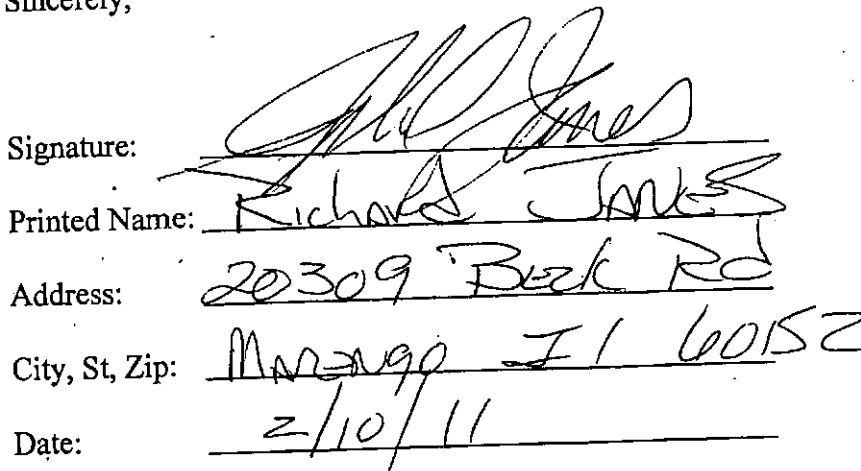 Sincerely,
Signature:
Printed Name: Richard JANES
Address: 20309 Beck Rd
City, St, Zip: Marengo Il 60152
Date: 2/10/11